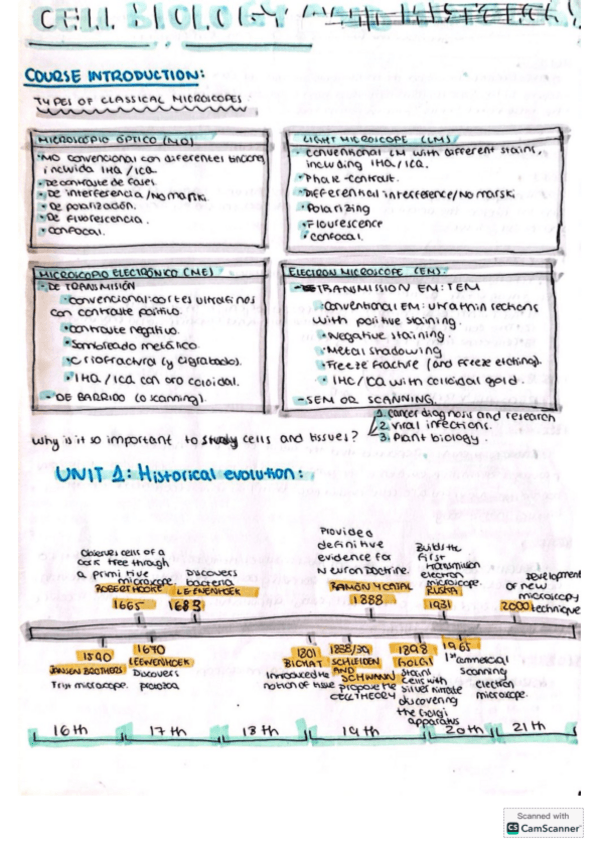 CELL BIOLOGY
COURSE INTRODUCTION:
TYPES OF CLASSICAL MICROSCOPES:
MICROSCOPIO ÓPTICO (MO)
MO convencional con diferentes
incluida IHQ/ICQ.
De contraste de fases.
De interferencia/Nomarski.
De polarización.
De fluorescencia.
Confocal.
LIGHT MICROSCOPE (LM)
Conventional LM with different stains,
including IHQ/ICQ.
Phase-contrast.
Differential interference/Nomarski
Polarizing
Flourescence
Confocal.
MICROSCOPIO ELECTRÓNICO (ME)
- DE TRANSMISIÓN
Convencional: cortes ultrafinos
con contraste positivo.
Contraste negativo.
Sombreado metálico.
Criofractura (y cigrabado).
IHQ/ICQ con oro coloidal.
- DE BARRIDO (o scanning).
ELECTRON MICROSCOPE (EM)
- TRANSMISSION EM: TEM
Conventional EM: ultrathin sections
with positive staining.
Negative staining.
Metal shadowing
Freeze fracture (and freeze etching).
IHC/ICQ with colloidal gold.
- SEM OR SCANNING.
Why is it so important to study cells and tissues?
1. Cancer diagnosis and research
2. Viral infections.
3. Plant biology.
UNIT 1: Historical evolution:
Observes cells of a
oak tree through
a primitive
microscope.
ROBERT HOOKE
1665
Discovers
bacteria
LEEWENHOEK
1683
Provided
definitive
evidence for
Neuron Doctrine.
RAMÓN Y CAJAL
1888
Builds the
first
transmission
electron
microscope.
RUSKA
1931
Development
of new
microscopy
techniques
2000
1590
JANSEN BROTHERS
First microscope.
1670
LEEWENHOEK
Discovers
protozoa.
1801
BICHAT
Introduced the
notion of tissue
1838/39
SCHLEIDEN
AND
SCHWANN
propose the
CELL THEORY
1898
GOLGI
Stains
cells with
silver nitrate
discovering
the Golgi
apparatus
1965
1st commercial
scanning
electron
microscope.
16th
17th
18th
19th
20th
21th
Scanned with
CS CamScanner